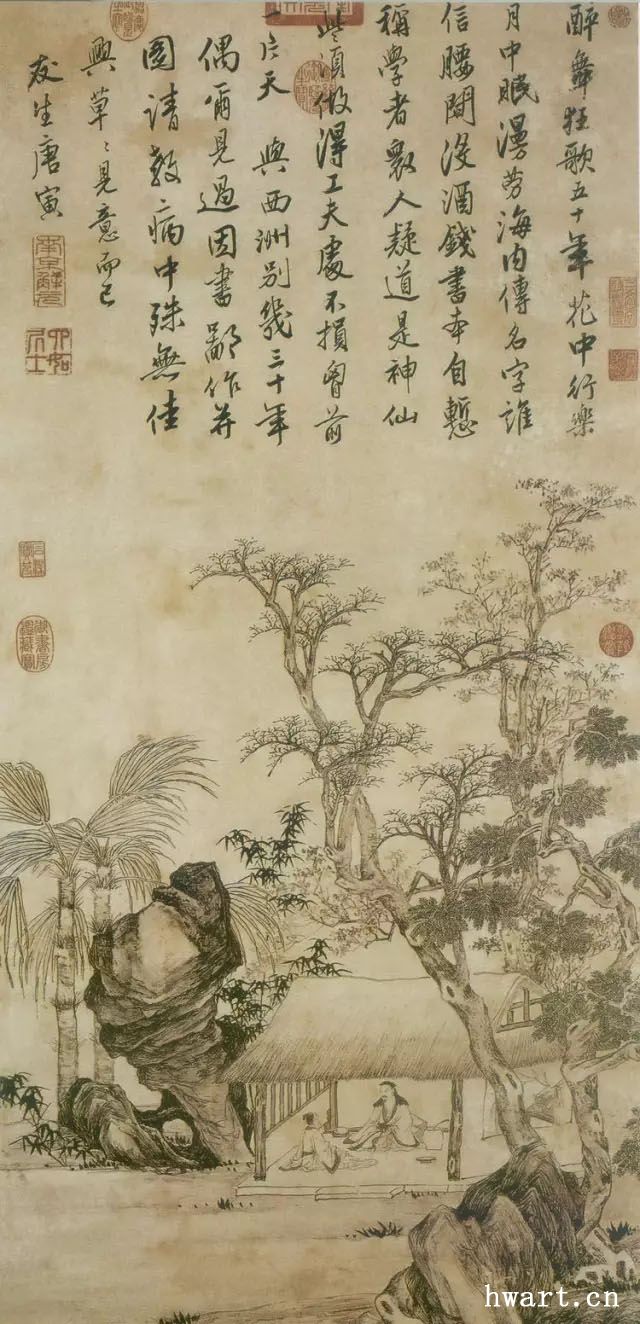 醉舞狂歌五十年花中行樂
月中眠漫勞海內傳名字誰
信腰間沒酒錢書本自慙
稱學者衆人疑道是神仙
些須做得工夫處不損胷前
一片天 與西洲別幾三十年
偶爾見過因書鄙作并
圖請教病中殊無佳
興草〻見意而已
友生唐寅
南京解元
六如居士
hwart.cn